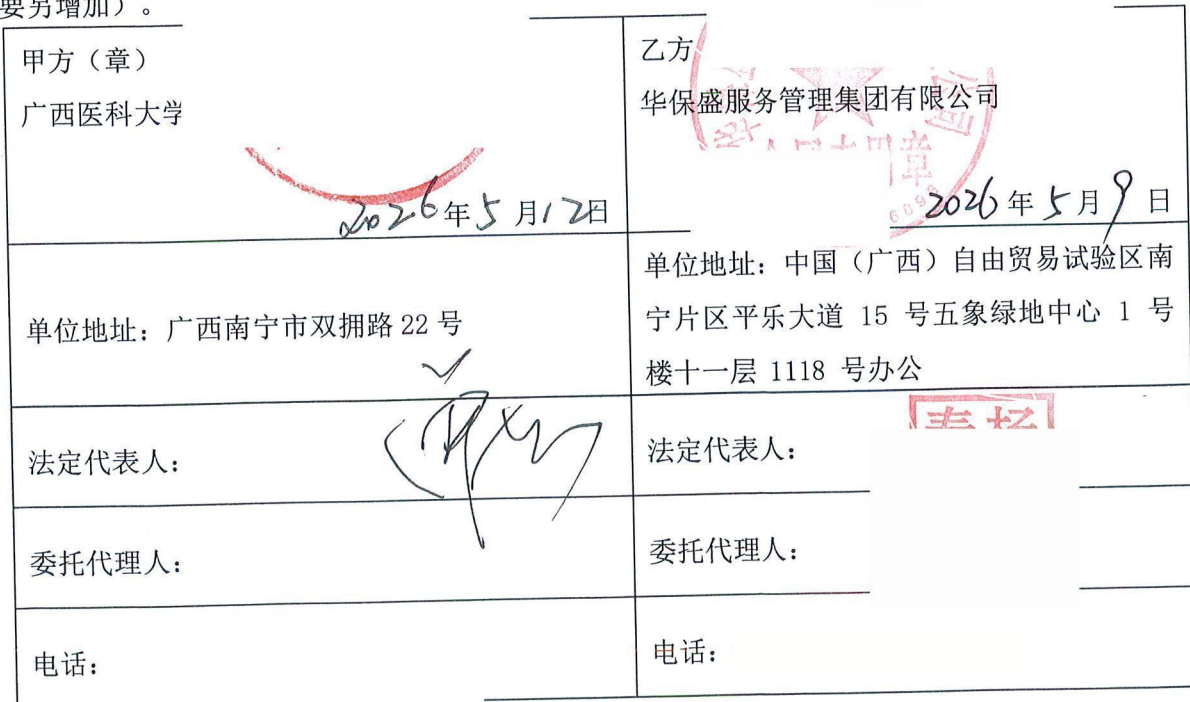 要另增加）。
甲方（章）
广西医科大学
2026年5月12日
乙方
华保盛服务管理集团有限公司
2026年5月9日
单位地址：广西南宁市双拥路22号
单位地址：中国（广西）自由贸易试验区南
宁片区平乐大道 15 号五象绿地中心 1 号
楼十一层 1118 号办公
法定代表人：
法定代表人：
委托代理人：
委托代理人：
电话：
电话：